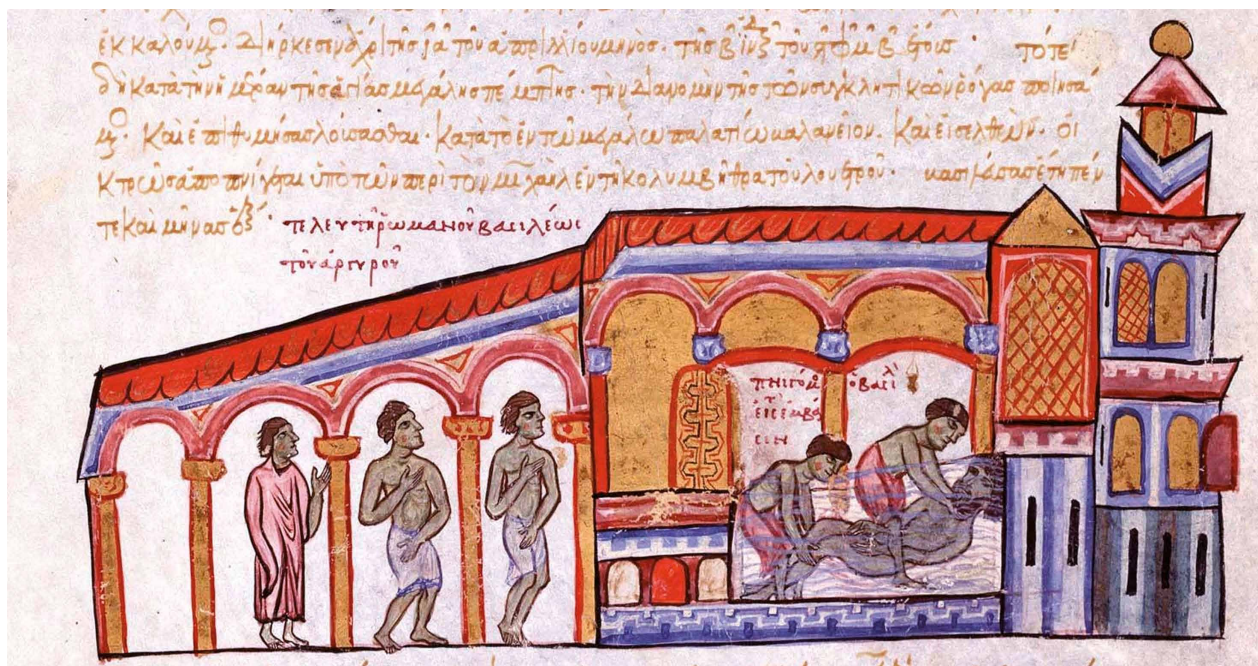 ἐκκαλούμος· διήρκεσεν ἄχρι τῆς ια τοῦ ἀπριλλίου μηνός· τῆς β ἰνδ τοῦ ϛφμβ ἔτους· τότε
δὴ κατὰ τὴν ἡμέραν τῆς ἁγίας μεγάλης πέμπτης· τὴν διανομὴν τῆς τῶν συγκλητικῶν ῥόγας ποιησά
μος· καὶ ἐπιθυμήσας λούσασθαι· κατὰ τὸ ἐν τῷ μεγάλω παλατίω βαλανεῖον. καὶ εἰσελθών· οἰ
κτρῶς ἀποπνίγεται ὑπὸ τῶν περὶ τὸν μιχαὴλ ἐν τῆ κολυμβήθρα τοῦ λουτροῦ· ἔτη πέν
τε καὶ μῆνας ἕξ·
τελευτὴ ρωμανοῦ βασιλέως
τοῦ ἀργυροῦ
πνιγόμ ὁ βασιλ
εἰς ἐμβα
σιν